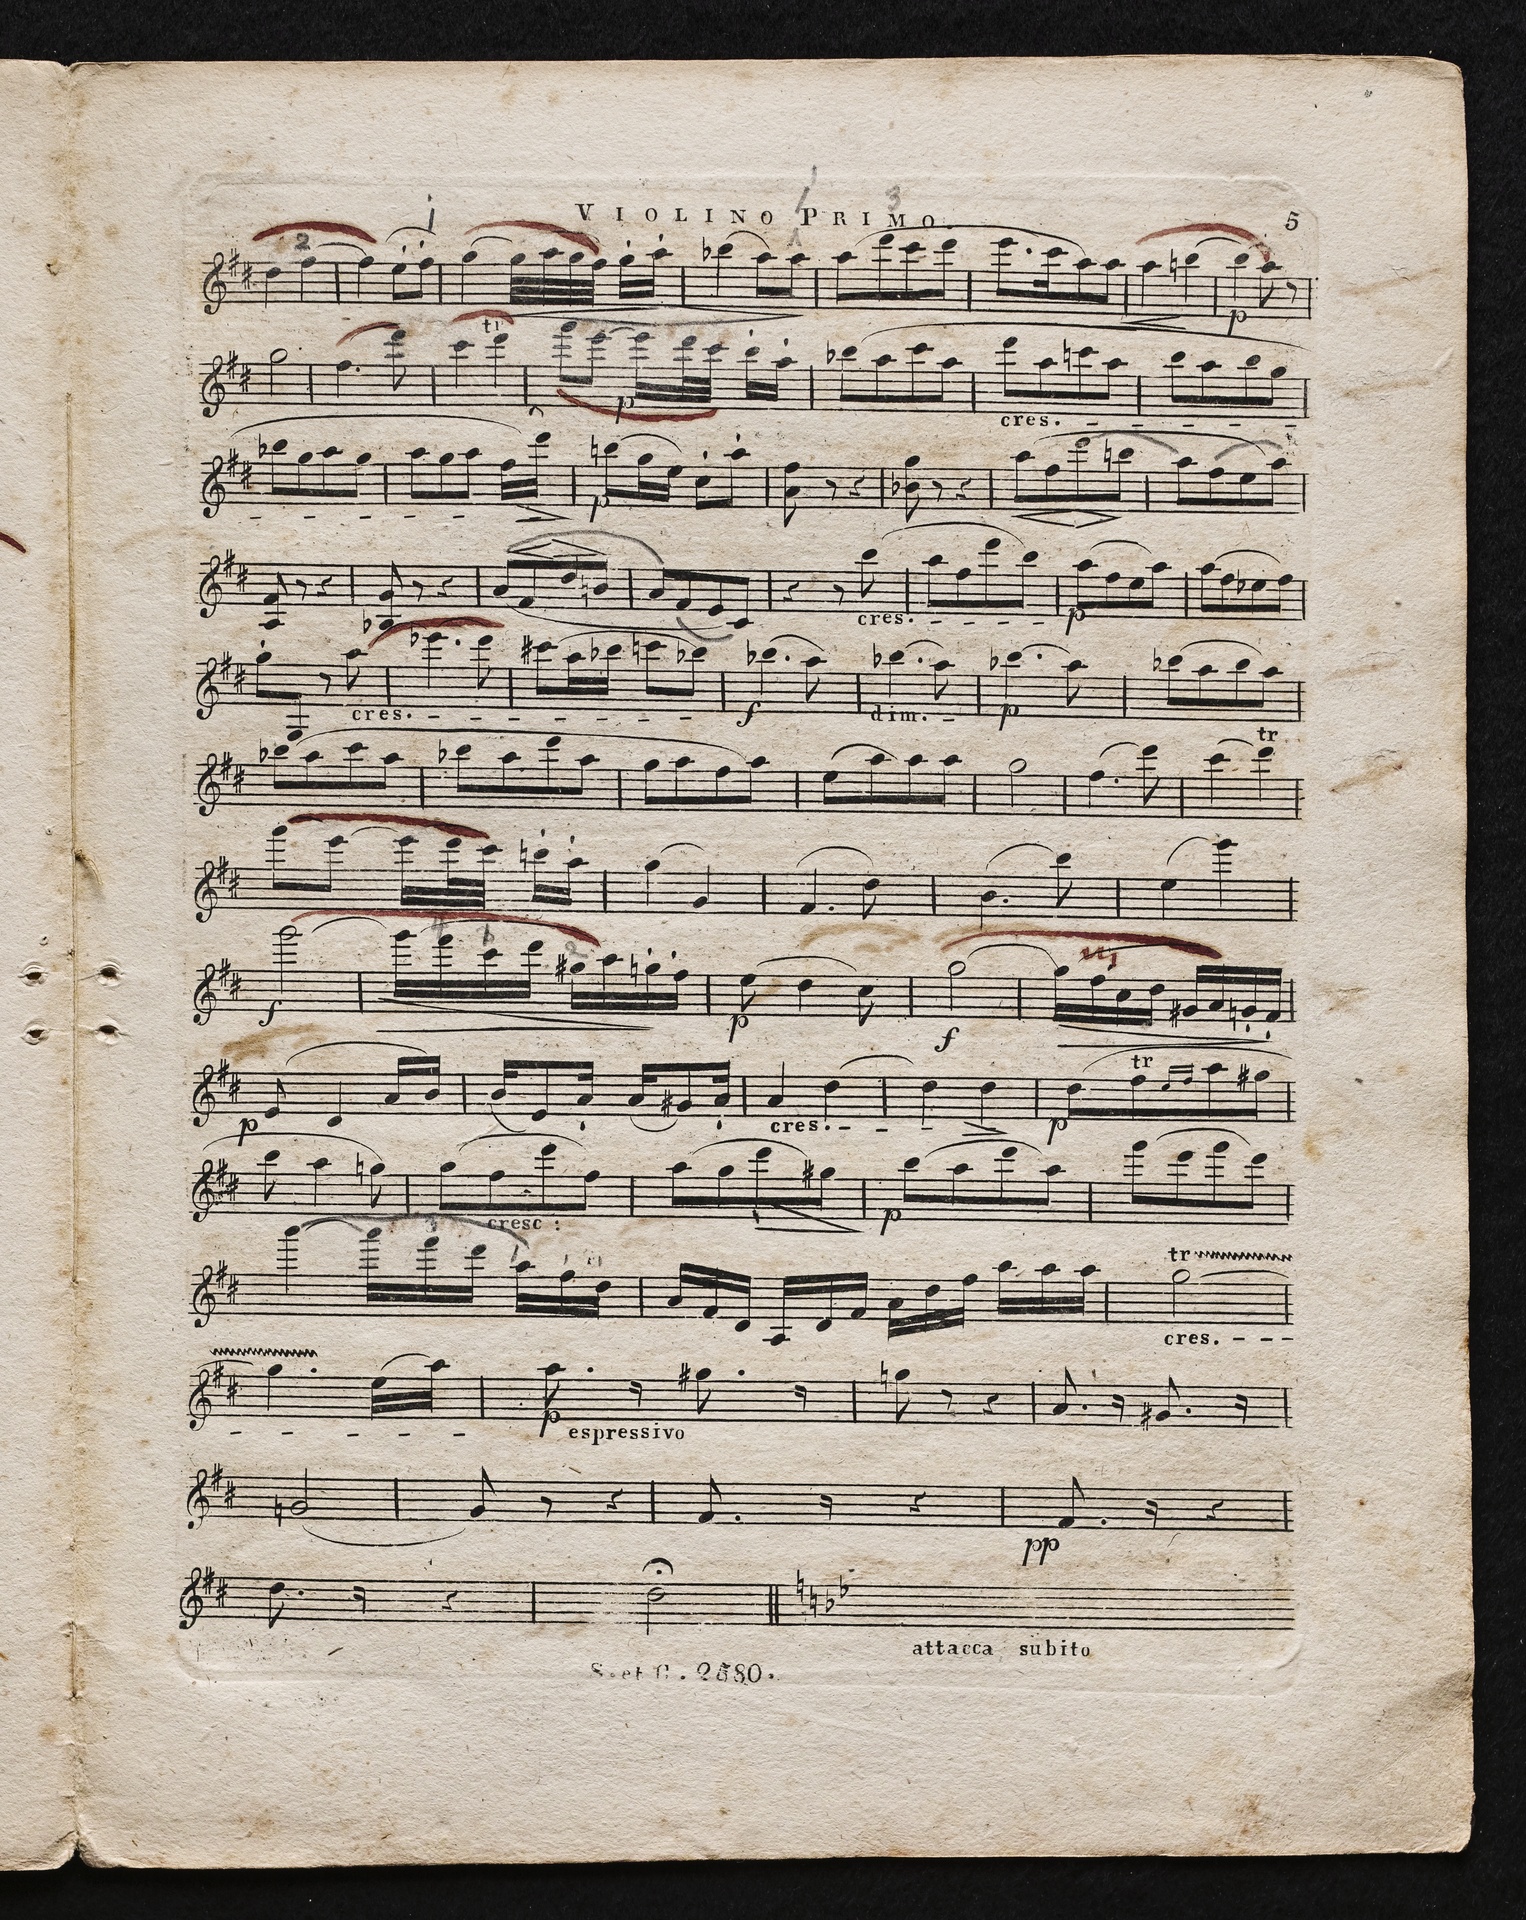 VIOLINO PRIMO.
5
2 1 1 3
p
tr
p
cres.
p
cres. p
cres. f dim. p
tr
f p f
p cres. p tr
cresc: p
3 1
tr
cres.
p espressivo
pp
attacca subito
S. et C. 2580.